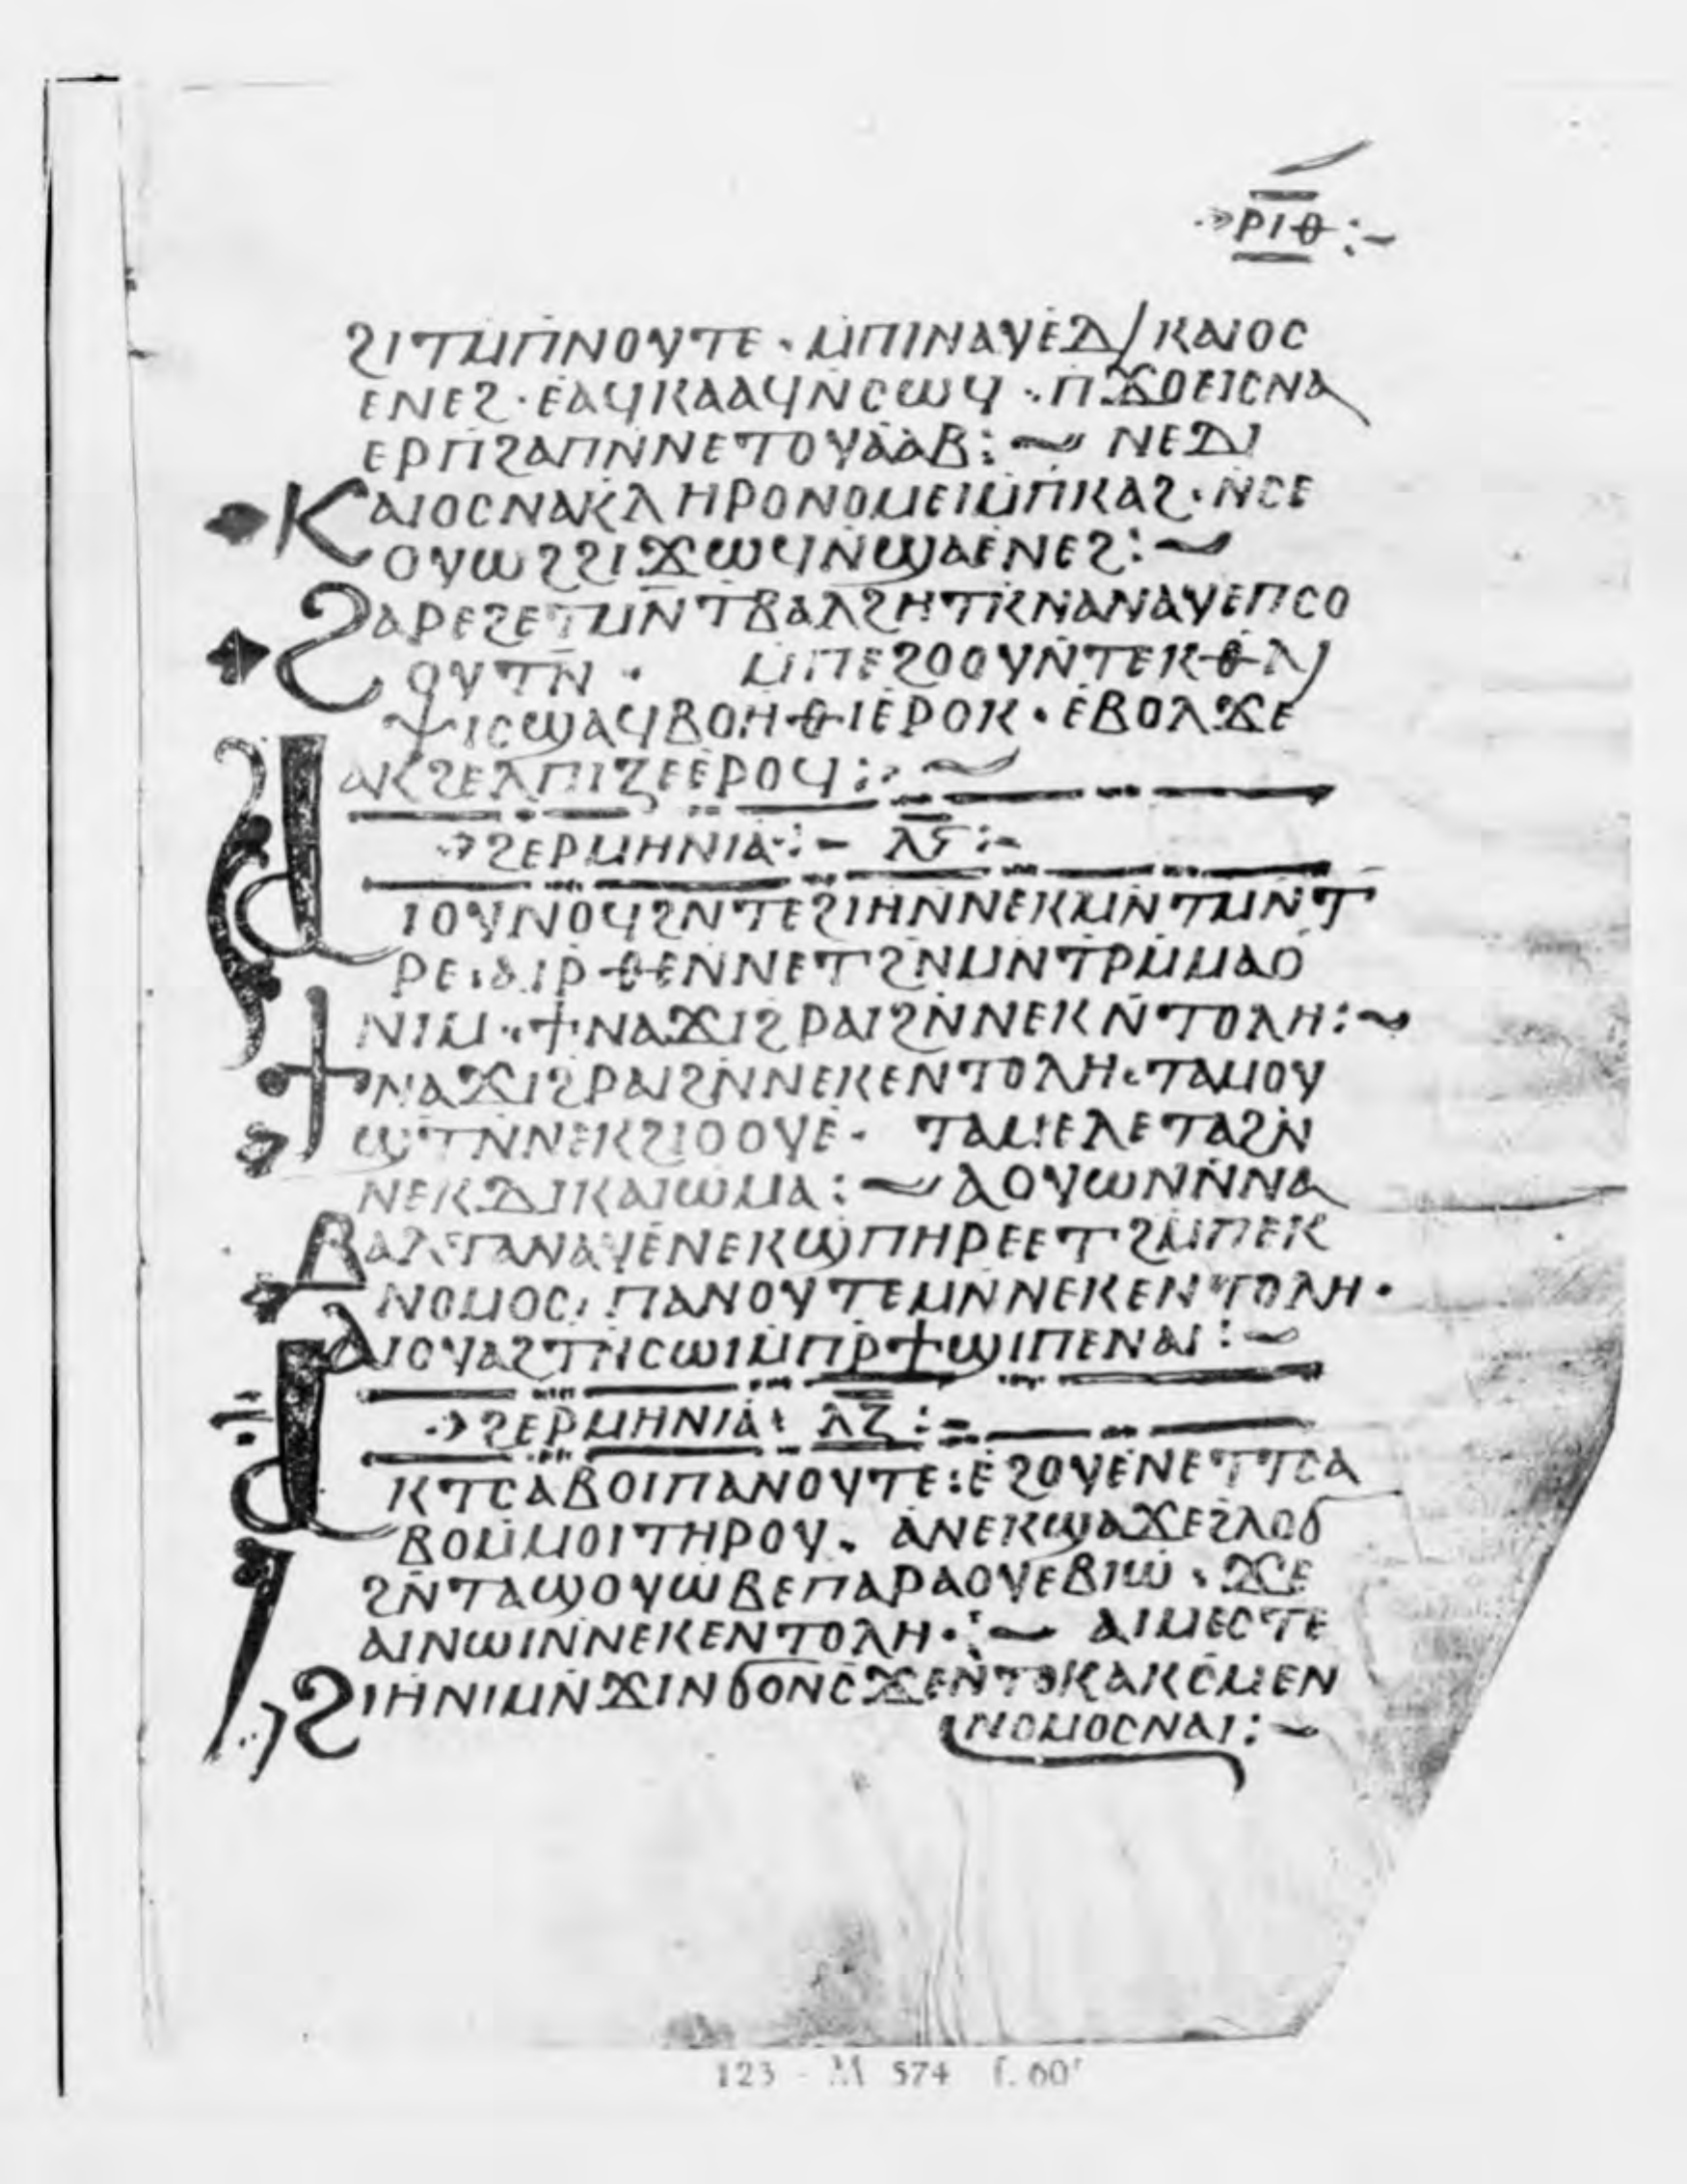 ⲣⲓⲑ:-
ϩⲓⲧⲙⲡⲛⲟⲩⲧⲉ · ⲙ̄ⲡⲓⲛⲁⲩⲉⲇ/ⲕⲁⲓⲟⲥ
ⲉⲛⲉϩ · ⲉⲁϥⲕⲁⲁϥⲛ̄ⲥⲱϥ · ⲡϫⲟⲉⲓⲥⲛⲁ
ⲉⲣⲡϩⲁⲡⲛ̄ⲛⲉⲧⲟⲩⲁⲁⲃ:~ ⲛⲉⲇⲓ
ⲕⲁⲓⲟⲥⲛⲁⲕⲗⲏⲣⲟⲛⲟⲙⲉⲓⲙ̄ⲡⲕⲁϩ · ⲛ̄ⲥⲉ
ⲟⲩⲱϩϩⲓϫⲱϥⲛ̄ϣⲁⲉⲛⲉϩ:~
ϩⲁⲣⲉϩⲉⲧⲙⲛ̄ⲧⲃⲁⲗϩⲏⲧⲕ̄ⲛⲁⲛⲁⲩⲉⲡⲥⲟ
ⲟⲩⲧⲛ̄ · ⲙ̄ⲡⲉϩⲟⲟⲩⲛ̄ⲧⲉⲕⲑⲗⲓ
ⲯⲓⲥϣⲁϥⲃⲟⲏⲑⲓⲉⲣⲟⲕ · ⲉⲃⲟⲗϫⲉ
ⲁⲕϩⲉⲗⲡⲓⲍⲉⲉⲣⲟϥ:~
ϩⲉⲣⲙⲏⲛⲓⲁ:- ⲗ̄ⲋ̄:-
ⲁⲓⲟⲩⲛⲟϥϩⲛ̄ⲧⲉϩⲓⲏⲛ̄ⲛⲉⲕⲙⲛ̄ⲧⲙⲛ̄ⲧ
ⲣⲉ · ⲁⲓⲣ̄ⲑⲉⲛ̄ⲛⲉⲧϩⲛ̄ⲙⲛ̄ⲧⲣⲙ̄ⲙⲁⲟ
ⲛⲓⲙ · ϯⲛⲁϫⲓϩⲣⲁⲓϩⲛ̄ⲛⲉⲕⲛ̄ⲧⲟⲗⲏ:~
ϯⲛⲁϫⲓϩⲣⲁⲓϩⲛ̄ⲛⲉⲕⲉⲛⲧⲟⲗⲏ · ⲧⲁⲙⲟⲩ
ϣⲧⲛ̄ⲛⲉⲕϩⲓⲟⲟⲩⲉ · ⲧⲁⲙⲉⲗⲉⲧⲁϩⲛ̄
ⲛⲉⲕⲇⲓⲕⲁⲓⲱⲙⲁ:~ ⲁⲟⲩⲱⲛⲛ̄ⲛⲁ
ⲃⲁⲗⲧⲁⲛⲁⲩⲉⲛⲉⲕϣⲡⲏⲣⲉⲉⲧϩⲙ̄ⲡⲉⲕ
ⲛⲟⲙⲟⲥ · ⲡⲁⲛⲟⲩⲧⲉⲙⲛ̄ⲛⲉⲕⲉⲛⲧⲟⲗⲏ ·
ⲁⲓⲟⲩⲁϩⲧⲛ̄ⲥⲱⲓⲙ̄ⲡⲣ̄ϯϣⲓⲡⲉⲛⲁⲓ:~
ϩⲉⲣⲙⲏⲛⲓⲁ: ⲗ̄ⲍ̄:-
ⲁⲕⲧⲥⲁⲃⲟⲓⲡⲁⲛⲟⲩⲧⲉ:ⲉϩⲟⲩⲉⲛⲉⲧⲧⲥⲁ
ⲃⲟⲙ̄ⲙⲟⲓⲧⲏⲣⲟⲩ · ⲁⲛⲉⲕϣⲁϫⲉϩⲗⲟϭ
ϩⲛ̄ⲧⲁϣⲟⲩⲱⲃⲉⲡⲁⲣⲁⲟⲩⲉⲃⲓⲱ · ϫⲉ
ⲁⲓⲛⲱⲓⲛ̄ⲛⲉⲕⲉⲛⲧⲟⲗⲏ·:~ ⲁⲓⲙⲉⲥⲧⲉ
ϩⲓⲏⲛⲓⲙⲛ̄ϫⲓⲛϭⲟⲛⲥ̄ϫⲉⲛ̄ⲧⲟⲕⲁⲕⲥⲙⲉⲛ
ⲛⲟⲙⲟⲥⲛⲁⲓ:~
123 - M 574 f. 60r